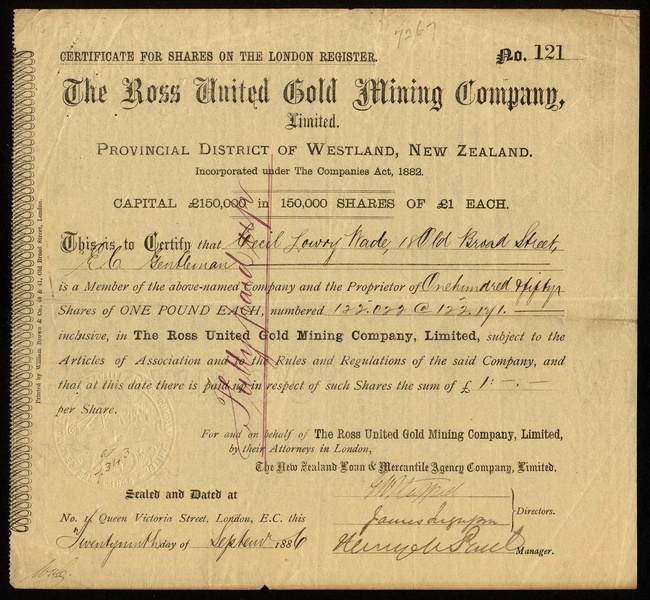 7267
CERTIFICATE FOR SHARES ON THE LONDON REGISTER. No. 121
The Ross United Gold Mining Company,
Limited.
PROVINCIAL DISTRICT OF WESTLAND, NEW ZEALAND.
Incorporated under The Companies Act, 1882.
CAPITAL £150,000, in 150,000 SHARES OF £1 EACH.
This is to Certify that Cecil Lowry Wade, 18 Old Broad Street,
E.C. Gentleman
is a Member of the above-named Company and the Proprietor of One hundred & fifty
Shares of ONE POUND EACH, numbered 122.022 @ 122.171.
inclusive, in The Ross United Gold Mining Company, Limited, subject to the
Articles of Association and to the Rules and Regulations of the said Company, and
that at this date there is paid up in respect of such Shares the sum of £ 1:-.-
per Share.
Fully paid up
For and on behalf of The Ross United Gold Mining Company, Limited,
by their Attorneys in London,
The New Zealand Loan & Mercantile Agency Company, Limited.
Sealed and Dated at
No. 1, Queen Victoria Street, London, E.C. this
Twentyninth day of Septemr 1886
Directors.
Henry M Paul Manager.
Printed by William Brown & Co., 40 & 41, Old Broad Street, London.